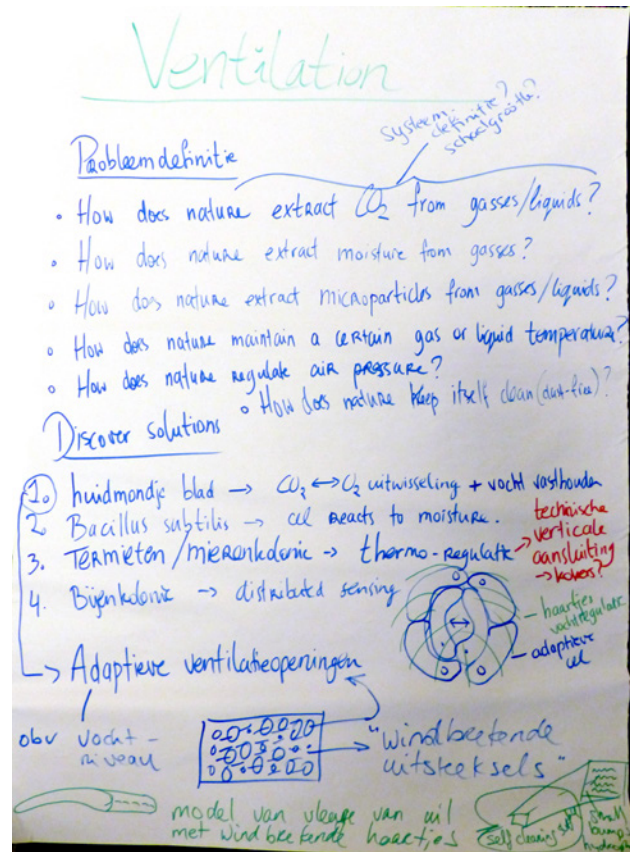 Ventilation
systeem-
definitie?
schaalgrootte?
Probleemdefinitie
• How does nature extract CO2 from gasses/liquids?
• How does nature extract moisture from gasses?
• How does nature extract microparticles from gasses/liquids?
• How does nature maintain a certain gas or liquid temperature?
• How does nature regulate air pressure?
• How does nature keep itself clean (dust-free)?
Discover solutions
1. huidmondje blad → CO2 ↔ O2 uitwisseling + vocht vasthouden
2. Bacillus subtilis → cel reacts to moisture.
3. Termieten/mierenkolonie → thermo-regulatie →
technische
verticale
aansluiting
→ kokers?
4. Bijenkolonie → distributed sensing
haartjes
vochtregulatie
adaptieve
cel
→ Adaptieve ventilatieopeningen
obv vocht-
niveau
"windbrekende
uitsteeksels"
model van vleugel van uil
met windbrekende haartjes
self cleaning
small
bumps